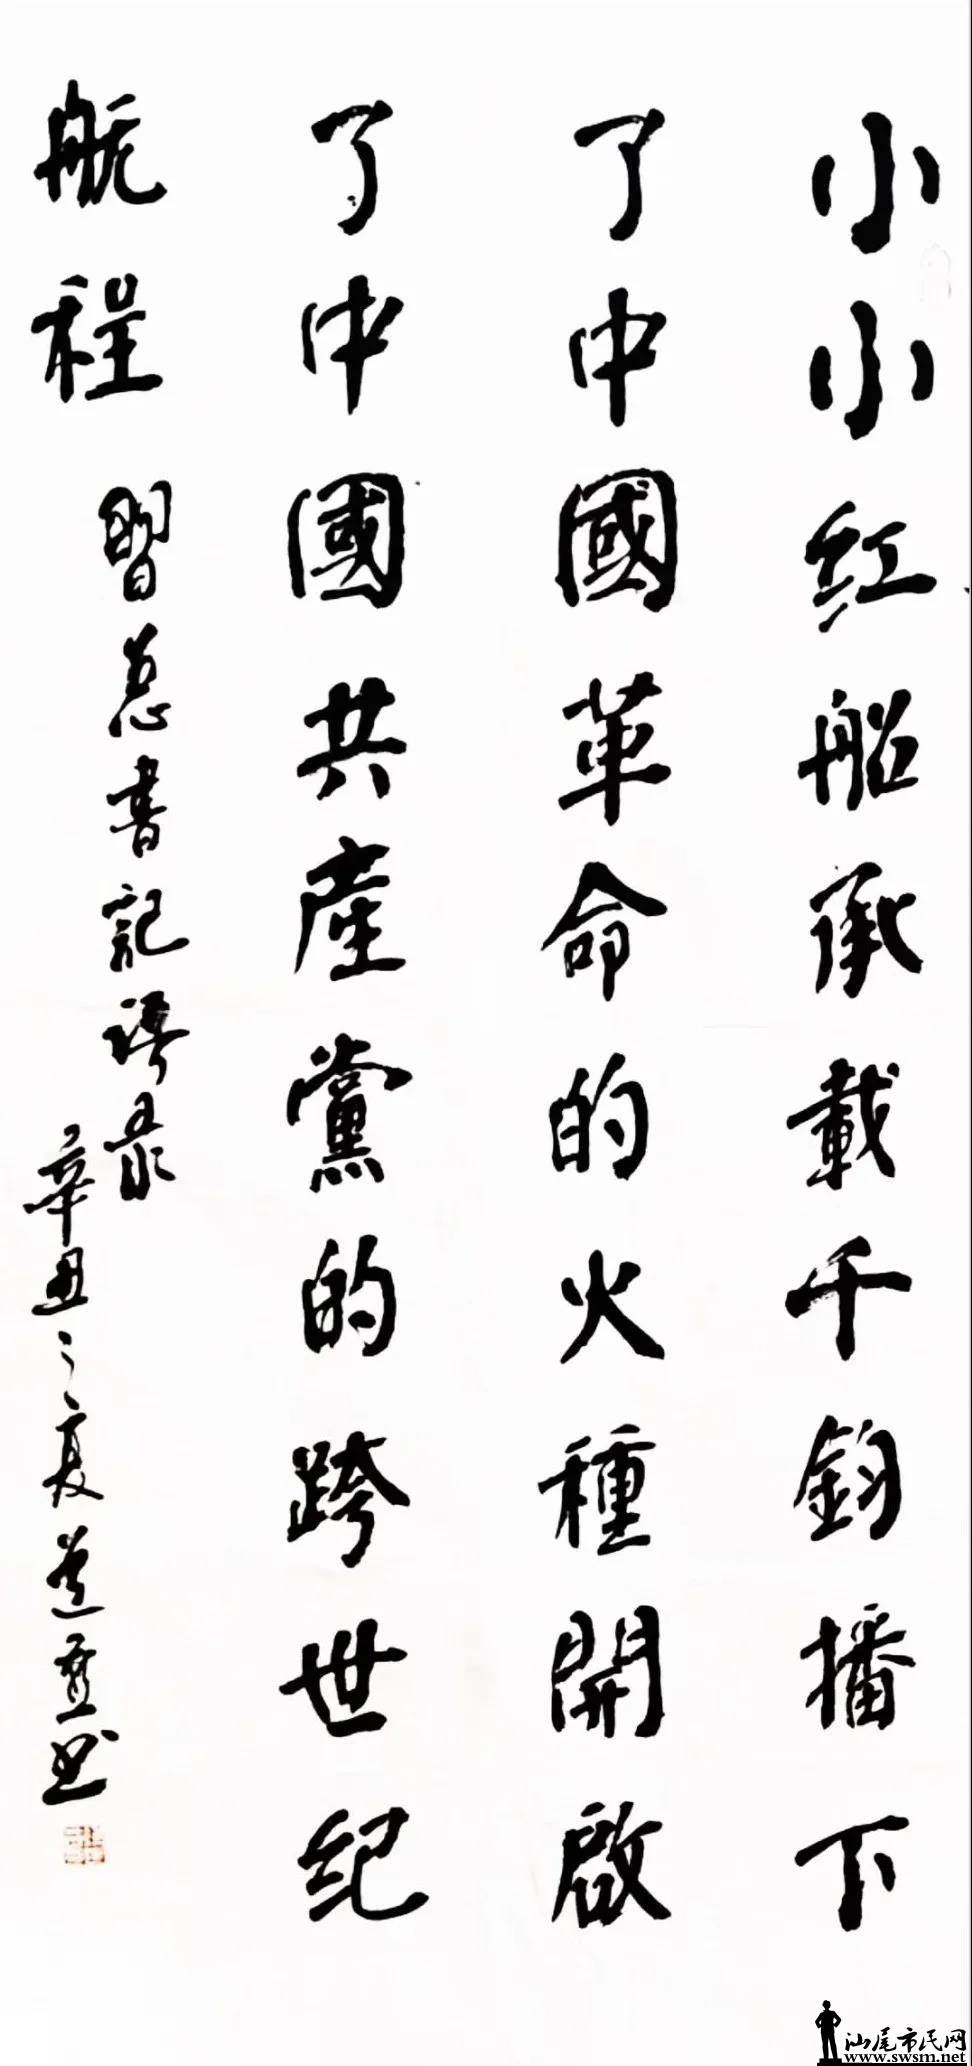 小小红船承載千鈞播下
了中國革命的火種開啟
了中國共產黨的跨世纪
航程
習总書記語录
辛丑之夏
书
汕尾市民网
www.swsm.net